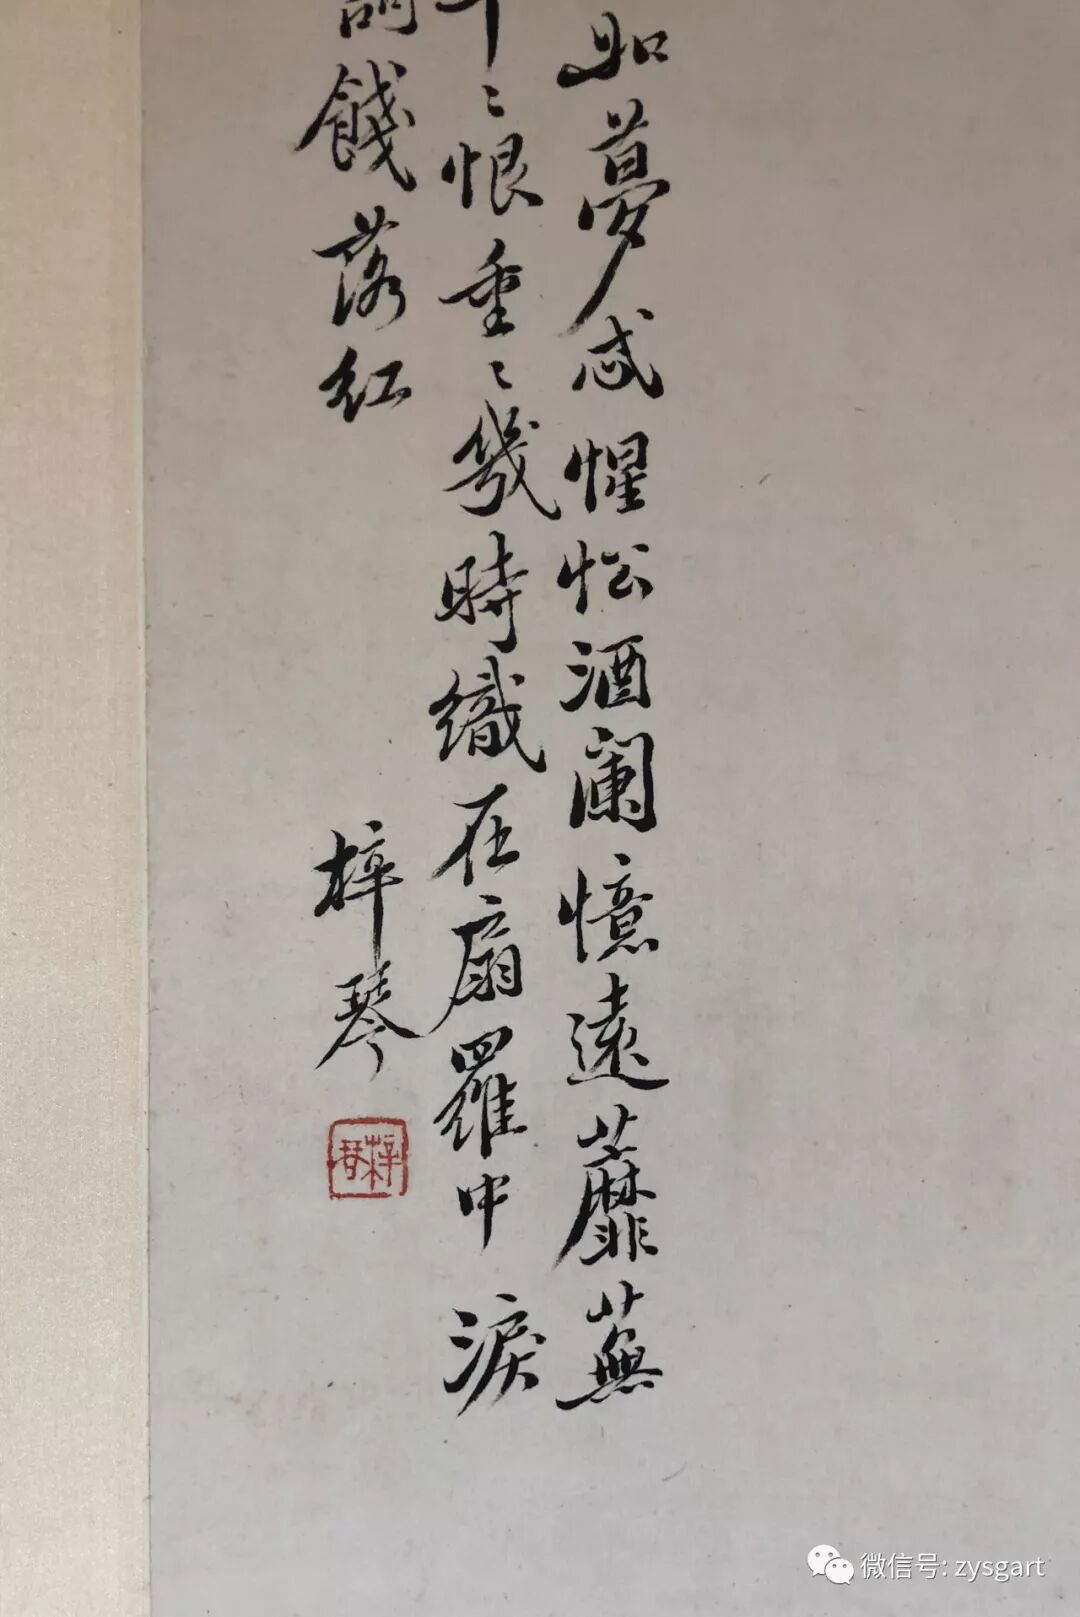 如夢感惺忪酒闌憶遠蘼蕪
恨重〻幾時織在扇羅中淚
詞餞落紅
梓琴
梓琴
微信号: zysgart